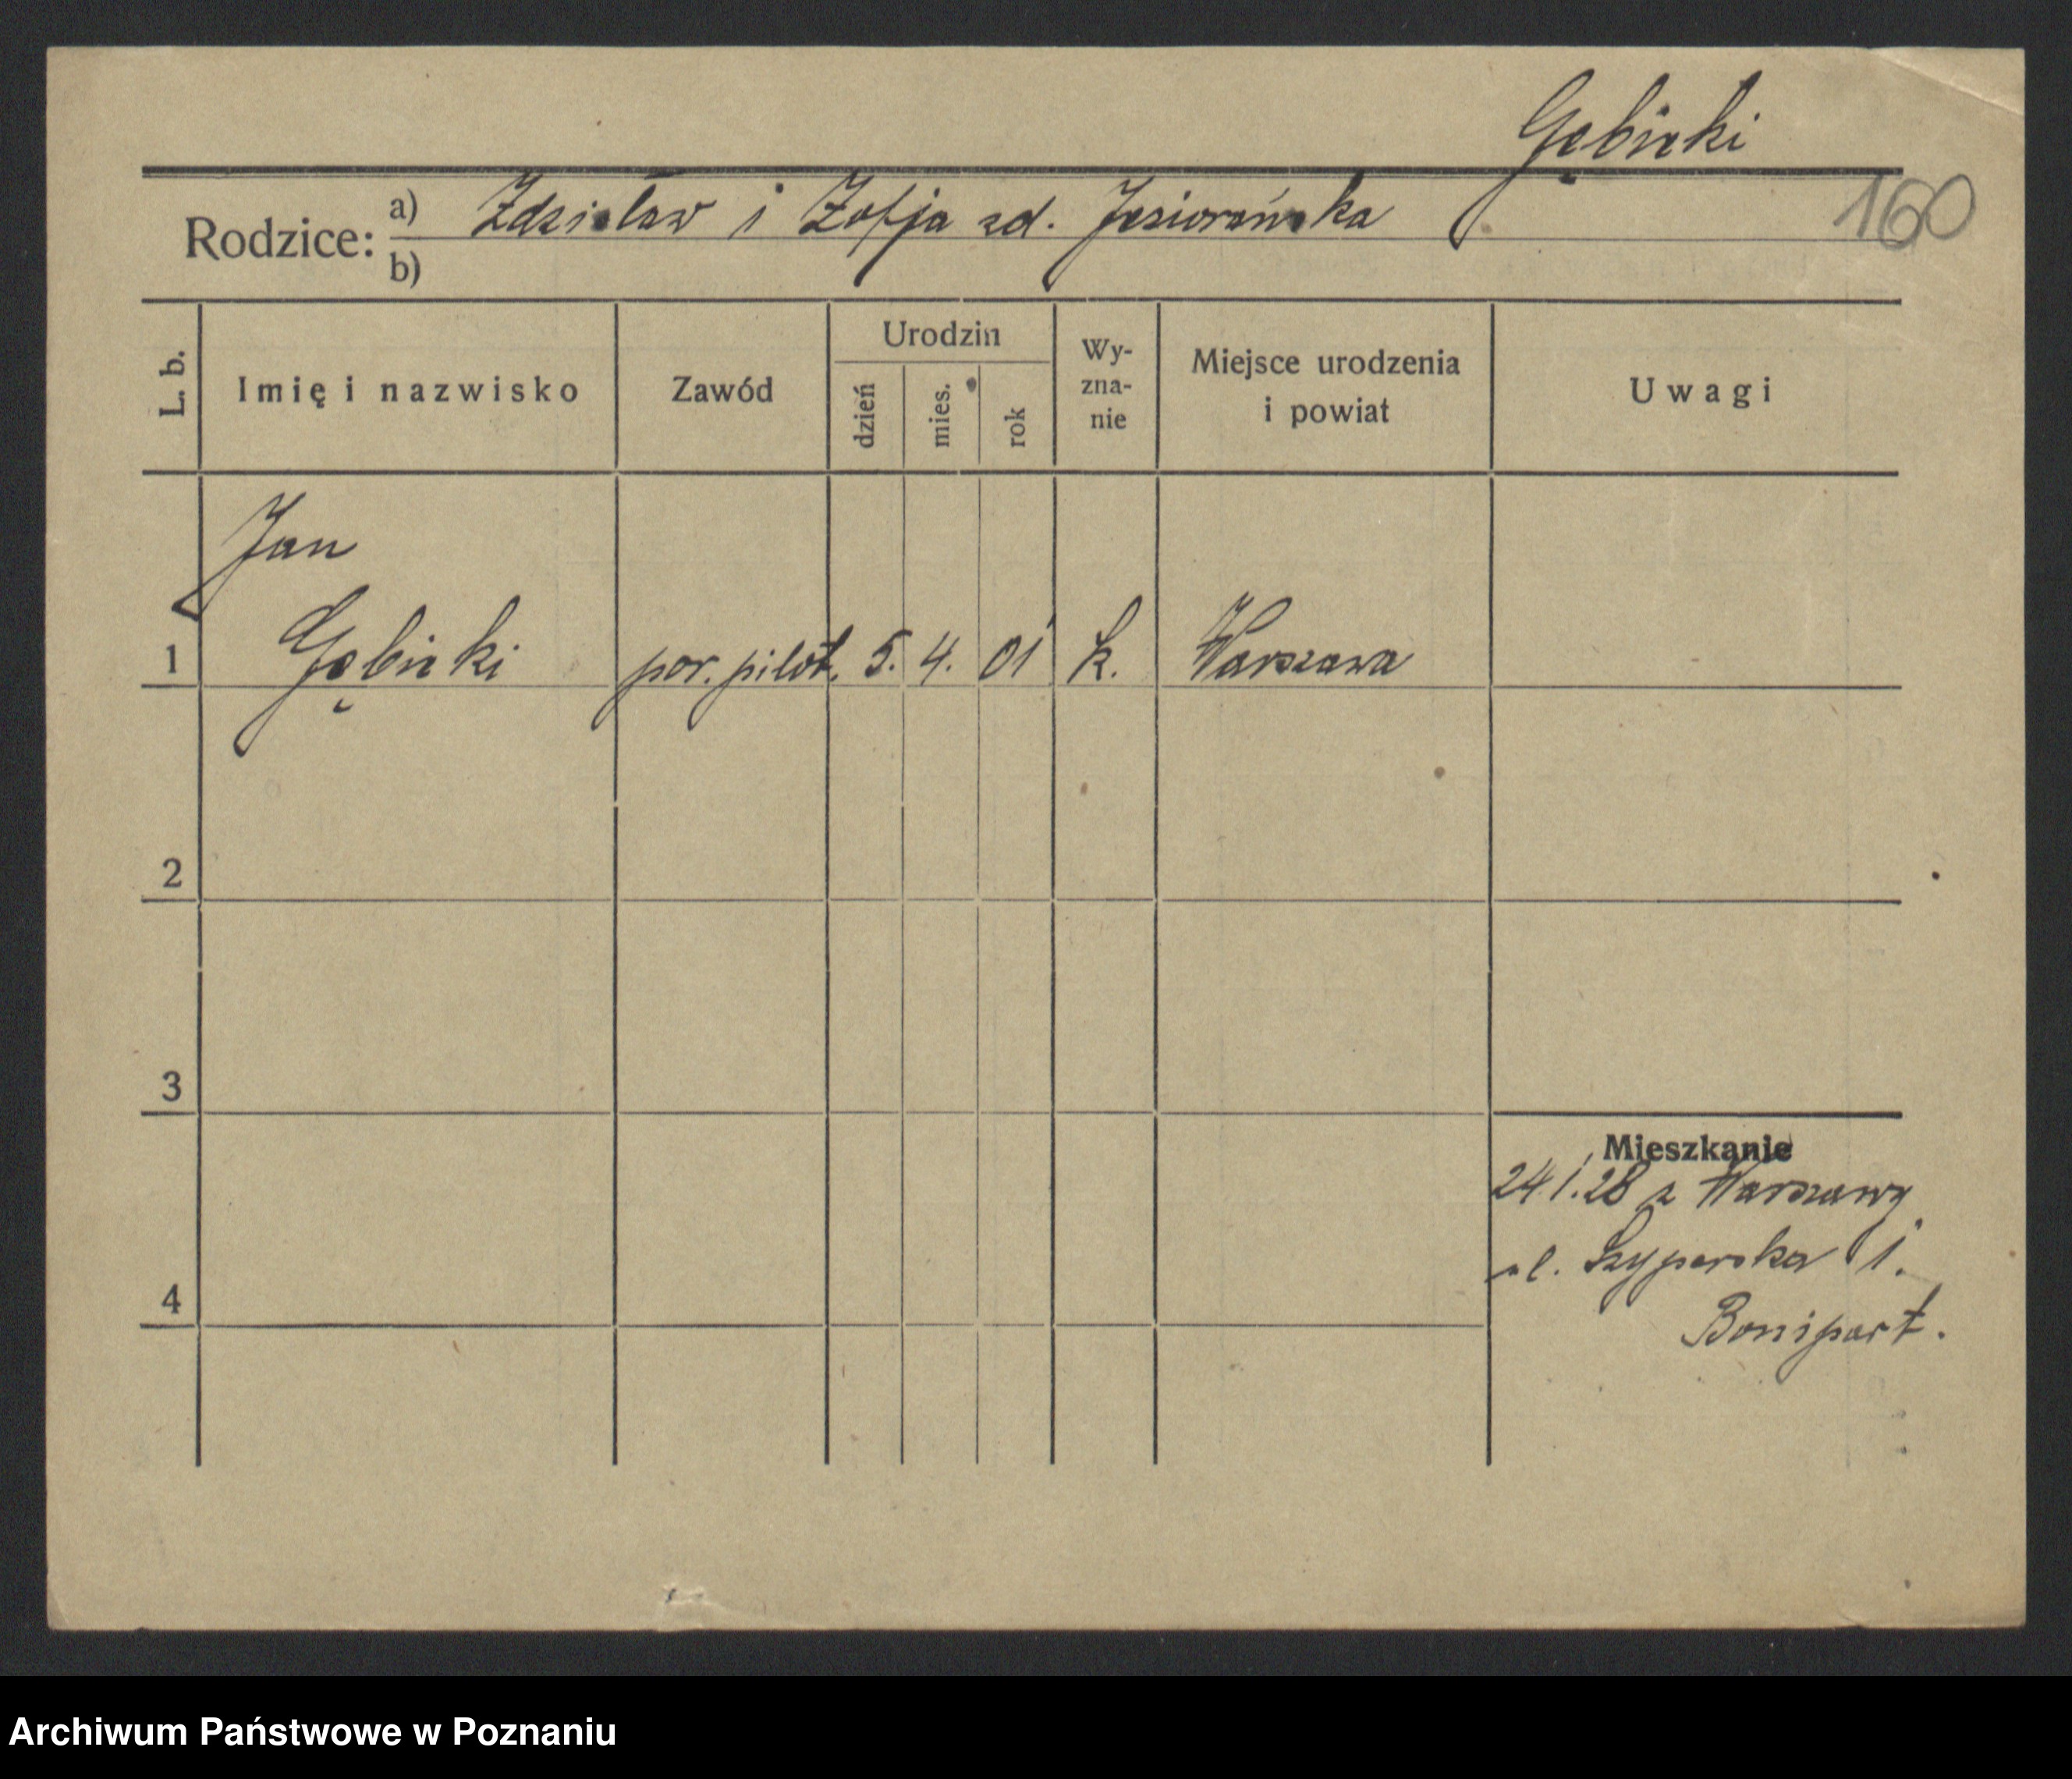 Gębicki
160
Rodzice: a) Zdzisław i Zofja zd. Jesiorańska
b)
L. b.
Imię i nazwisko
Zawód
Urodzin
dzień
mies.
rok
Wy-
zna-
nie
Miejsce urodzenia
i powiat
Uwagi
Jan
1 Gębicki por. pilot. 5. 4. 01 k. Warszawa
2
3
Mieszkanie
24.1.28 z Warszawy
ul. Szyperska 1.
4
Bonipart.
Archiwum Państwowe w Poznaniu